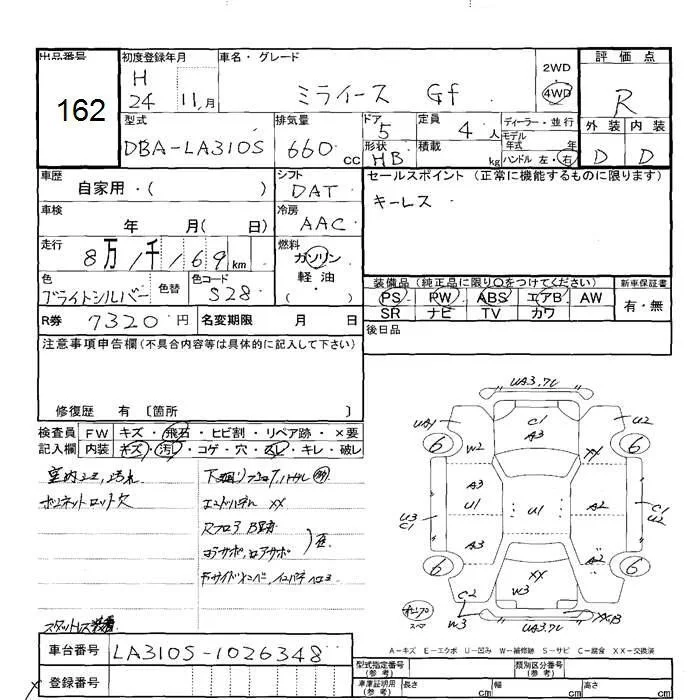 出品番号 初度登録年月 車名・グレード 2WD 評価点
162 H 24 11月 ミライース Gf 4WD R
型式 排気量 ドア 5 定員 4人 ディーラー・並行 外装 内装
DBA-LA310S 660cc 形状 HB 積載 kg モデル年式 年 D D
ハンドル 左・右
車歴 シフト セールスポイント (正常に機能するものに限ります)
自家用・( ) DAT キーレス
車検 冷房
年 月( 日) AAC
走行 燃料
8万1千169km ガソリン
軽油
( ・ )
色 色替 色コード 装備品 (純正品に限り○をつけてください) 新車保証書
ブライトシルバー S28 PS PW ABS エアB AW 有・無
SR ナビ TV カワ
R券 7320円 名変期限 月 日 後日品
注意事項申告欄(不具合内容等は具体的に記入して下さい)
修復歴 有 〔箇所 〕
検査員 FW キズ・飛石・ヒビ割・リペア跡・×要
記入欄 内装 キズ・汚レ・コゲ・穴・スレ・キレ・破レ
ボンネットロット欠
エンドパネル XX
スタットレス装着
UA3.7L
UA1 C1 U2
A3
6 W2 XX 6
A3
U3 U1 U1 A2 C1
C1 U2
A3 A2
6 XX 6
W3
C2
W3 XXB
スペア
A-キズ E-エクボ U-凹み W-補修跡 S-サビ C-腐食 XX-交換済
車台番号 LA310S-1026348 型式指定番号 (参考) 類別区分番号 (参考)
登録番号 車庫証明用 (参考) 長さ cm 幅 cm 高さ cm